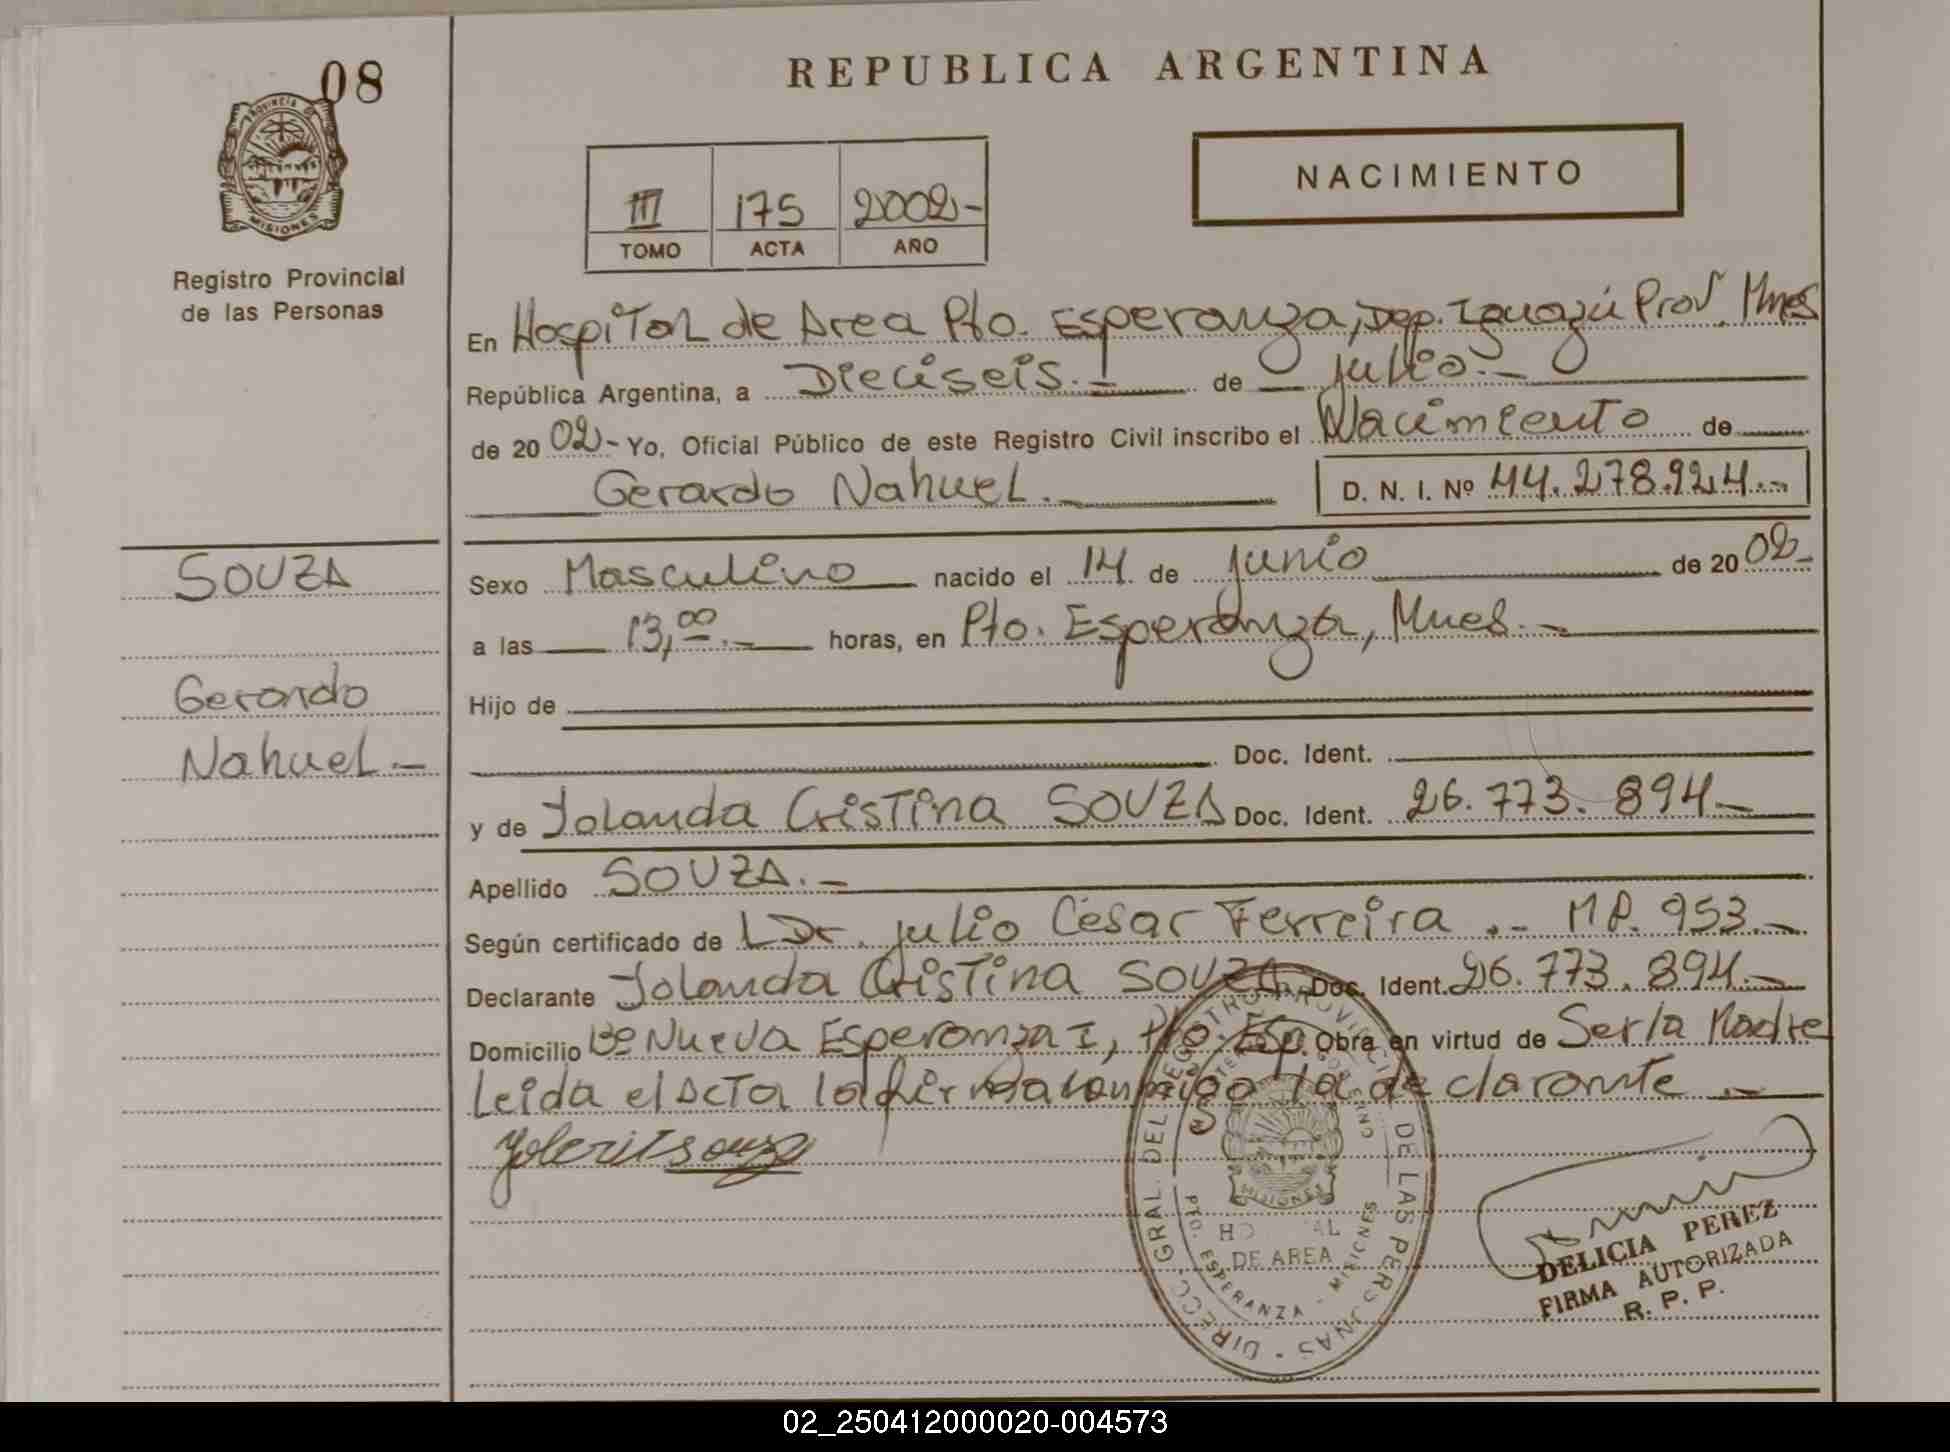 08
PROVINCIA DE
MISIONES
Registro Provincial
de las Personas
SOUZA
Gerardo
Nahuel.-
REPUBLICA ARGENTINA
III 175 2002-
TOMO ACTA AÑO
NACIMIENTO
En Hospital de Area Pto. Esperanza, Dep. Iguazú Prov. Mnes
República Argentina, a Dieciseis.- de julio.-
de 2002- Yo, Oficial Público de este Registro Civil inscribo el Nacimiento de
Gerardo Nahuel.- D. N. I. Nº 44.278.924.-
Sexo Masculino nacido el 14 de junio de 2002-
a las 13,00.- horas, en Pto. Esperanza, Mnes.-
Hijo de
Doc. Ident.
y de Yolanda Cristina SOUZA Doc. Ident. 26.773.894.-
Apellido SOUZA.-
Según certificado de Dr. julio César Ferreira.- MP. 953.-
Declarante Yolanda Cristina SOUZA Doc. Ident. 26.773.894.-
Domicilio Bº Nueva Esperanza I, Pto. Esp. Obra en virtud de Ser la Madre
Leida el Acta la firma conmigo la declarante.-
DIRECC. GRAL. DEL REGISTRO PROVINCIAL DE LAS PERSONAS
MISIONES
DE AREA
PTO. ESPERANZA - MISIONES
DELICIA PEREZ
FIRMA AUTORIZADA
R. P. P.
02_250412000020-004573